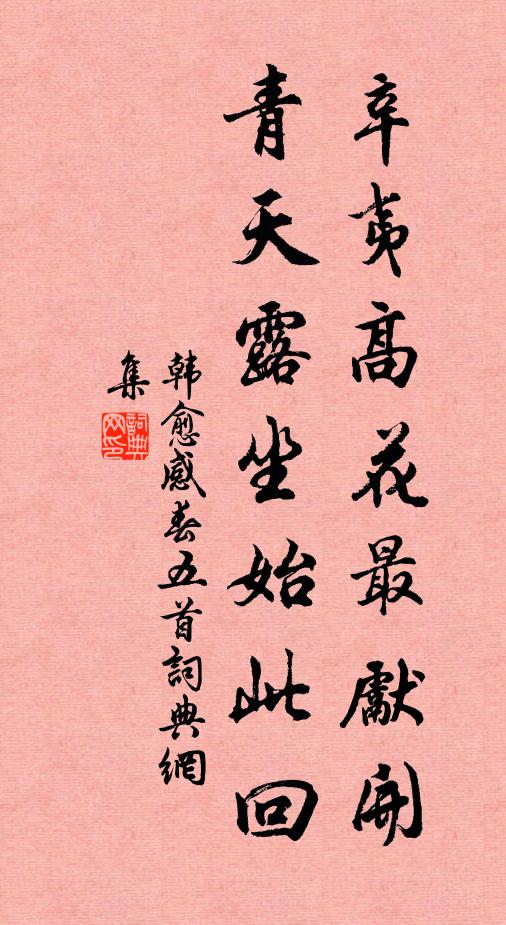 辛夷高花最獻開
青天露坐始此回
韩愈感春五首詞典網
集
詞典
网印